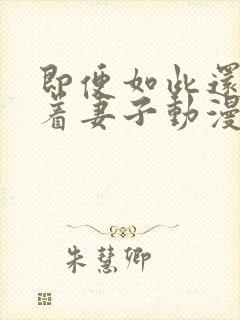 即便如此還
著妻子動漫
朱慧卿